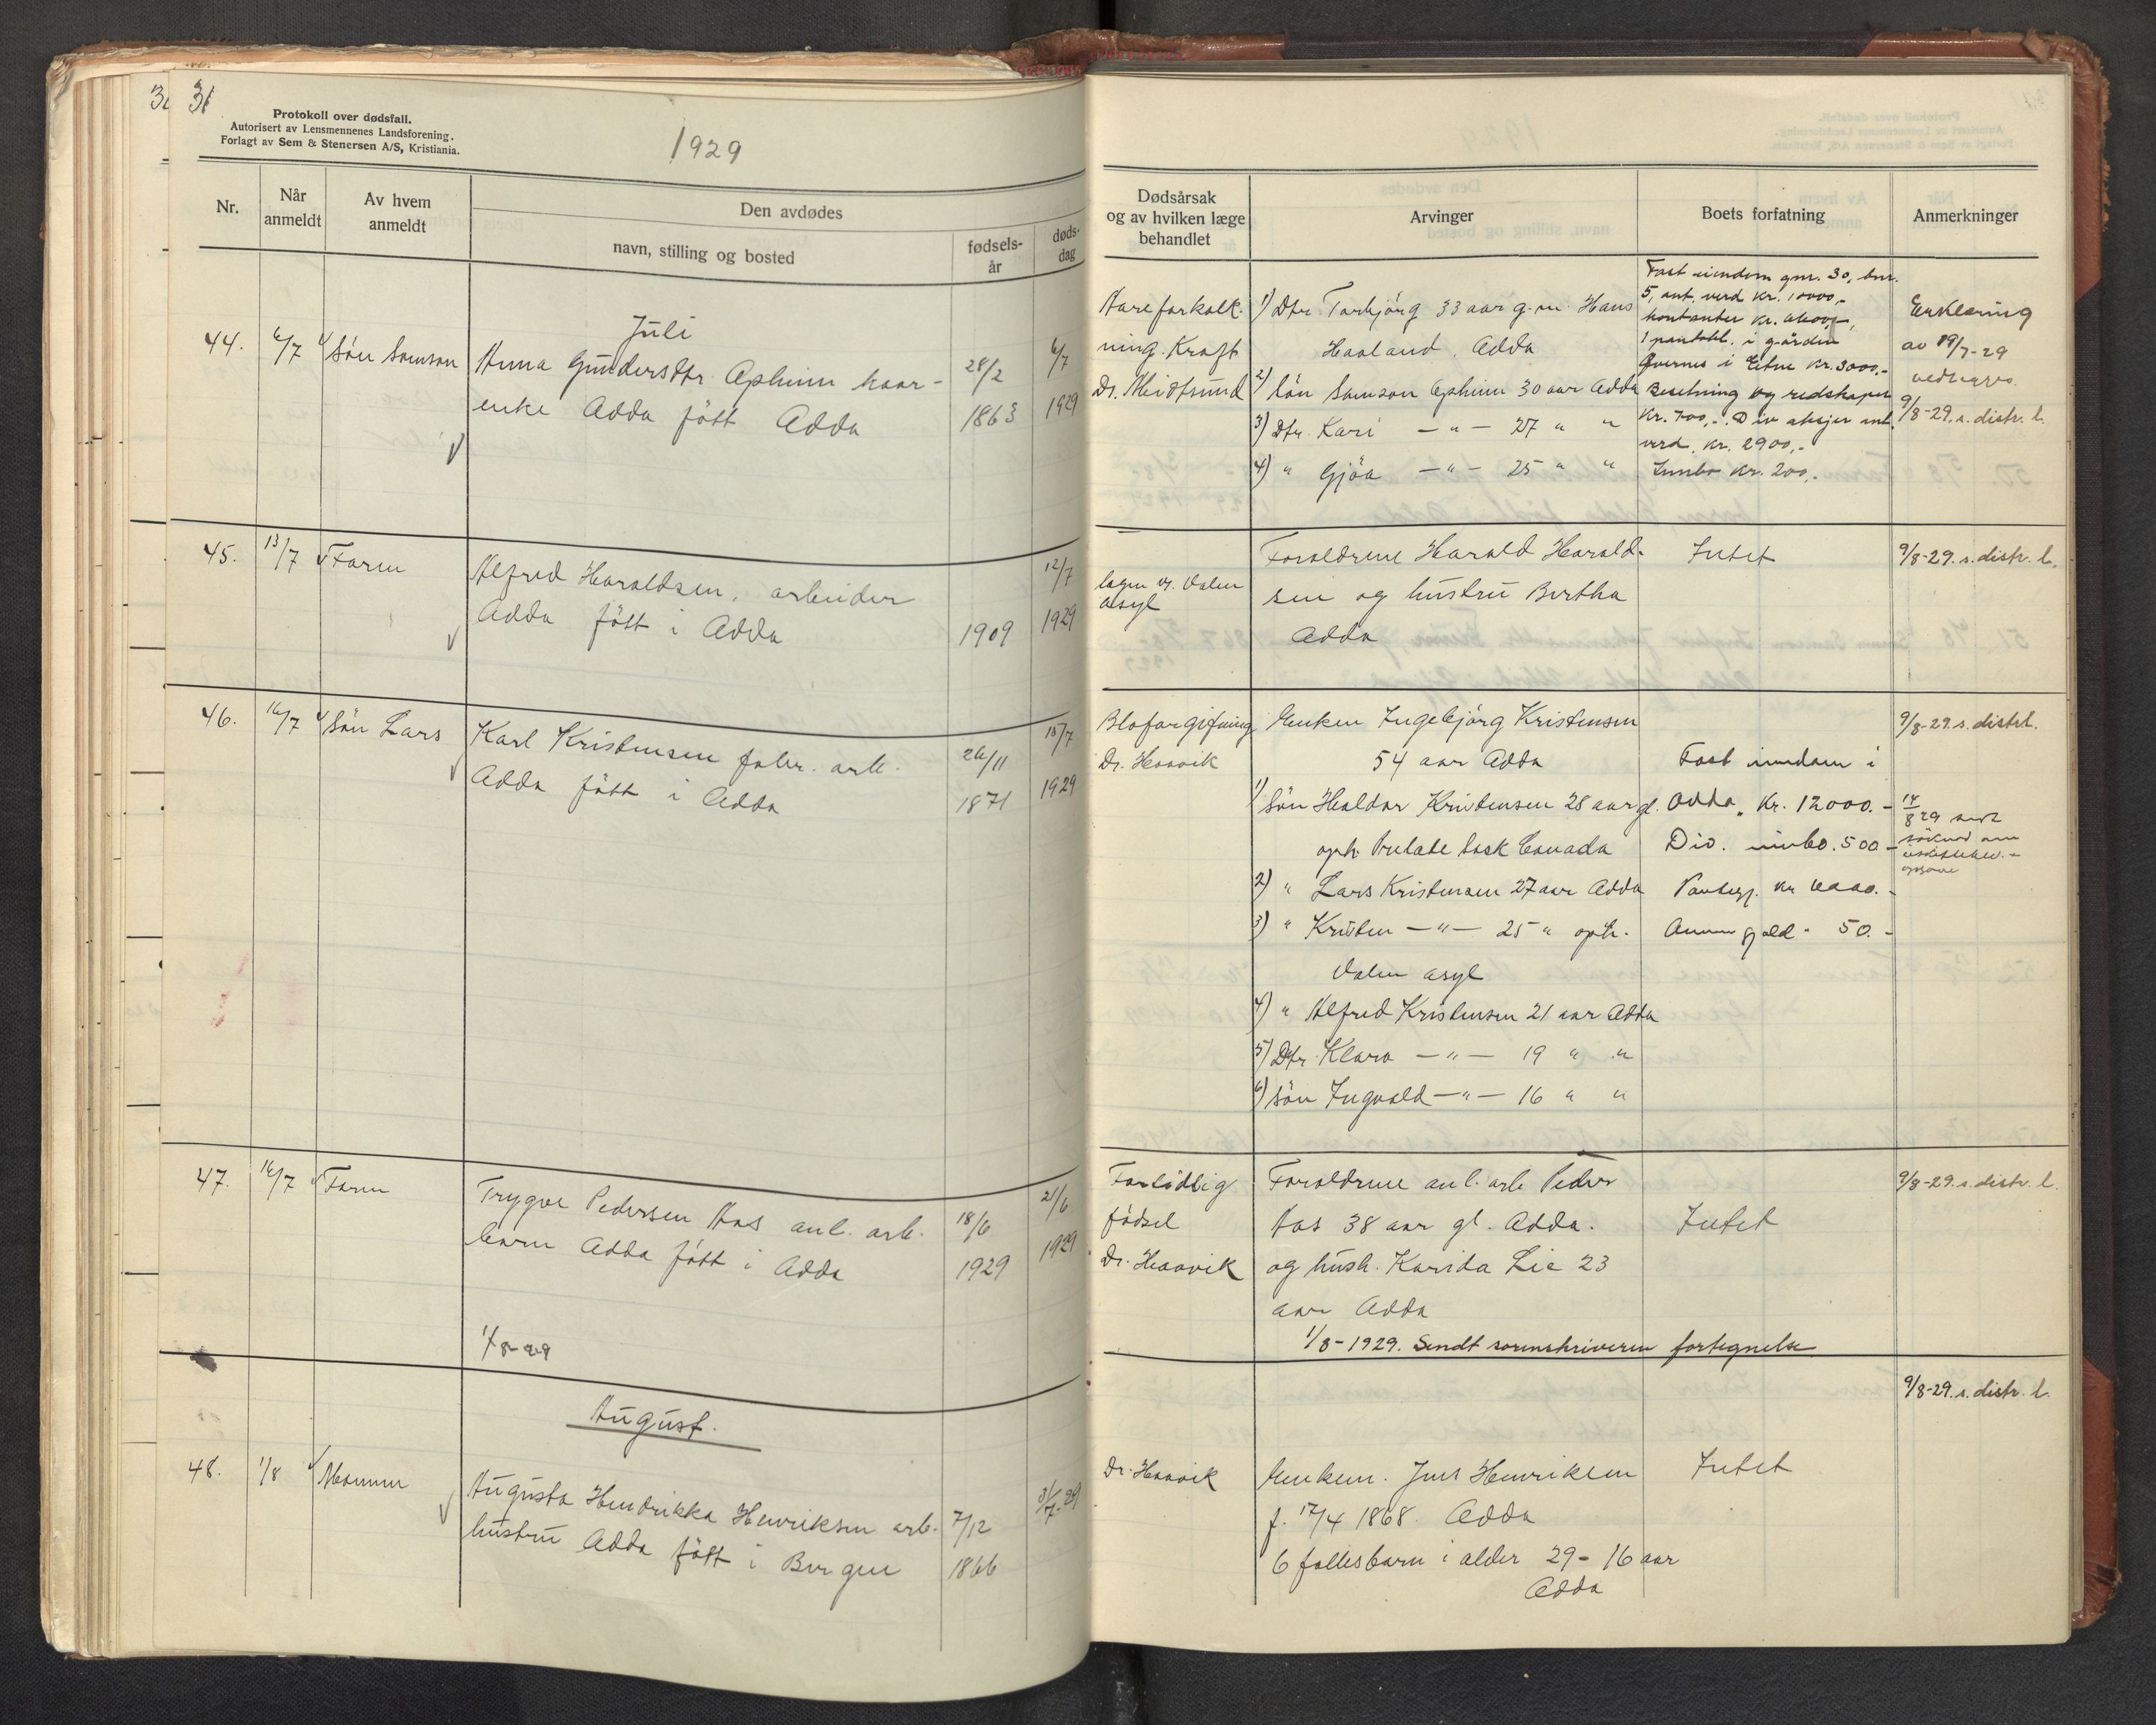 31
Protokoll over dødsfall.
Autorisert av Lensmennenes Landsforening.
Forlagt av Sem & Stenersen A/S, Kristiania.
1929
Nr.
Når anmeldt
Av hvem anmeldt
Den avdødes
navn, stilling og bosted
fødsels-år
døds-dag
Dødsårsak og av hvilken læge behandlet
Arvinger
Boets forfatning
Anmerkninger
Juli
44. 6/7 Søn Samson
Anna Gundersdtr Apheim kaar-
enke Odda født Odda
28/2 1863
6/7 1929
Aareforkalk-
ning. Kraft
Dr. Meidtsund
1) Dtr Torbjörg 33 aar g.m. Hans
Haaland, Odda
2) Søn Samson Apheim 30 aar Odda
3) Dtr. Kari —"— 27 " "
4) " Gjöa —"— 25 " "
Fast eiendom gnr. 30, bnr.
5, ant. verd kr. 10000,-
kontanter kr.
1 pantobl. i gården
Øvernes i Etne kr. 3000,-
Besetning og redskaper
kr. 700,-. Div aksjer ant.
verd. kr. 2900,-
Innbo kr. 200,-
Erklæring
av 19/7-29
9/8-29. s. distr. l.
45. 13/7 Faren
Alfred Haraldsen, arbeider
Odda født i Odda
1909
12/7 1929
lægen v. Valen
asyl
Foreldrene Harald Harald-
sen og hustru Bertha
Odda
Intet
9/8-29. s. distr. l.
46. 16/7 Søn Lars
Karl Kristensen fabr. arb.
Odda født i Odda
26/11 1871
15/7 1929
Bloforgifning
Dr. Haavik
Enken Ingebjörg Kristensen
54 aar Odda
1) Søn Haldor Kristensen 28 aar gl.
oph. Sask Canada
2) " Lars Kristensen 27 aar Odda
3) " Kristen —"— 25 " oph.
Valen asyl
4) " Alfred Kristensen 21 aar Odda
5) Dtr. Klara —"— 19 " "
6) Søn Ingvald —"— 16 " "
Fast eiendom i
Odda. Kr. 12000.-
Div. innbo. 500.-
Pantegj. kr 6000.-
Annen gjeld " 50.-
9/8-29. s. distr. l.
14/8 29 sendt
47. 16/7 Faren
Trygve Pedersen Aas anl. arb.
barn Odda født i Odda
18/6 1929
21/6 1929
Fortidlig
fødsel
Dr. Haavik
Foreldrene anl. arb Peder
Aas 38 aar gl. Odda.
og hush. Karida Lie 23
aar Odda
Intet
9/8-29. s. distr. l.
1/8-29
1/8-1929. Sendt sorenskriveren fortegnelse
August.
48. 1/8 Mannen
Augusta Hendrikka Henriksen arb.
hustru Odda født i Bergen
7/12 1866
31/7-29
Dr. Haavik
Enkem. Jens Henriksen
f. 17/4 1868. Odda
6 fellesbarn i alder 29-16 aar
Odda
Intet
9/8-29. s. distr. l.